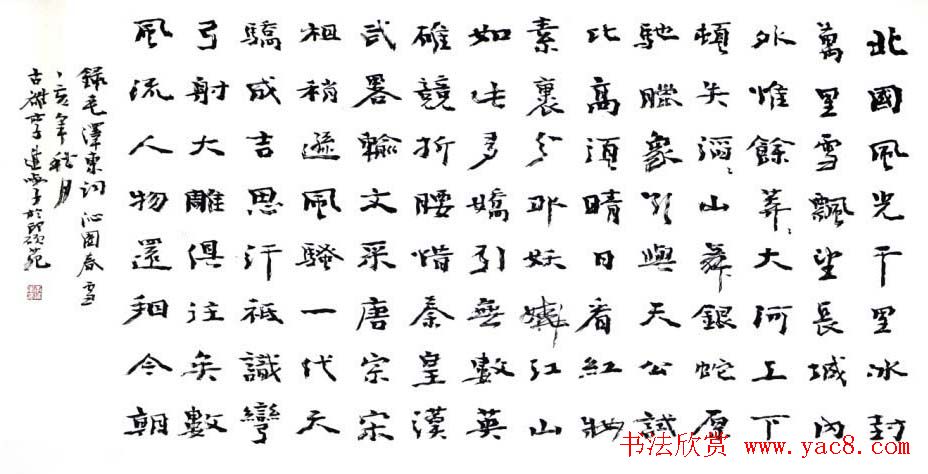 北國風光千里冰封
萬里雪飄望長城内
外惟餘莽、大河上下
頓失滔、山舞銀蛇原
馳臘象欲與天公試
比高須晴日看紅妝
素裹分外妖嬈江山
如此多嬌引無數英
雄競折腰惜秦皇漢
武略輸文采唐宗宋
祖稍遜風騷一代天
驕成吉思汗祗識彎
弓射大雕俱往矣數
風流人物還看今朝
録毛澤東詞沁園春雪
亥年秋月
书法欣赏 www.yac8.com